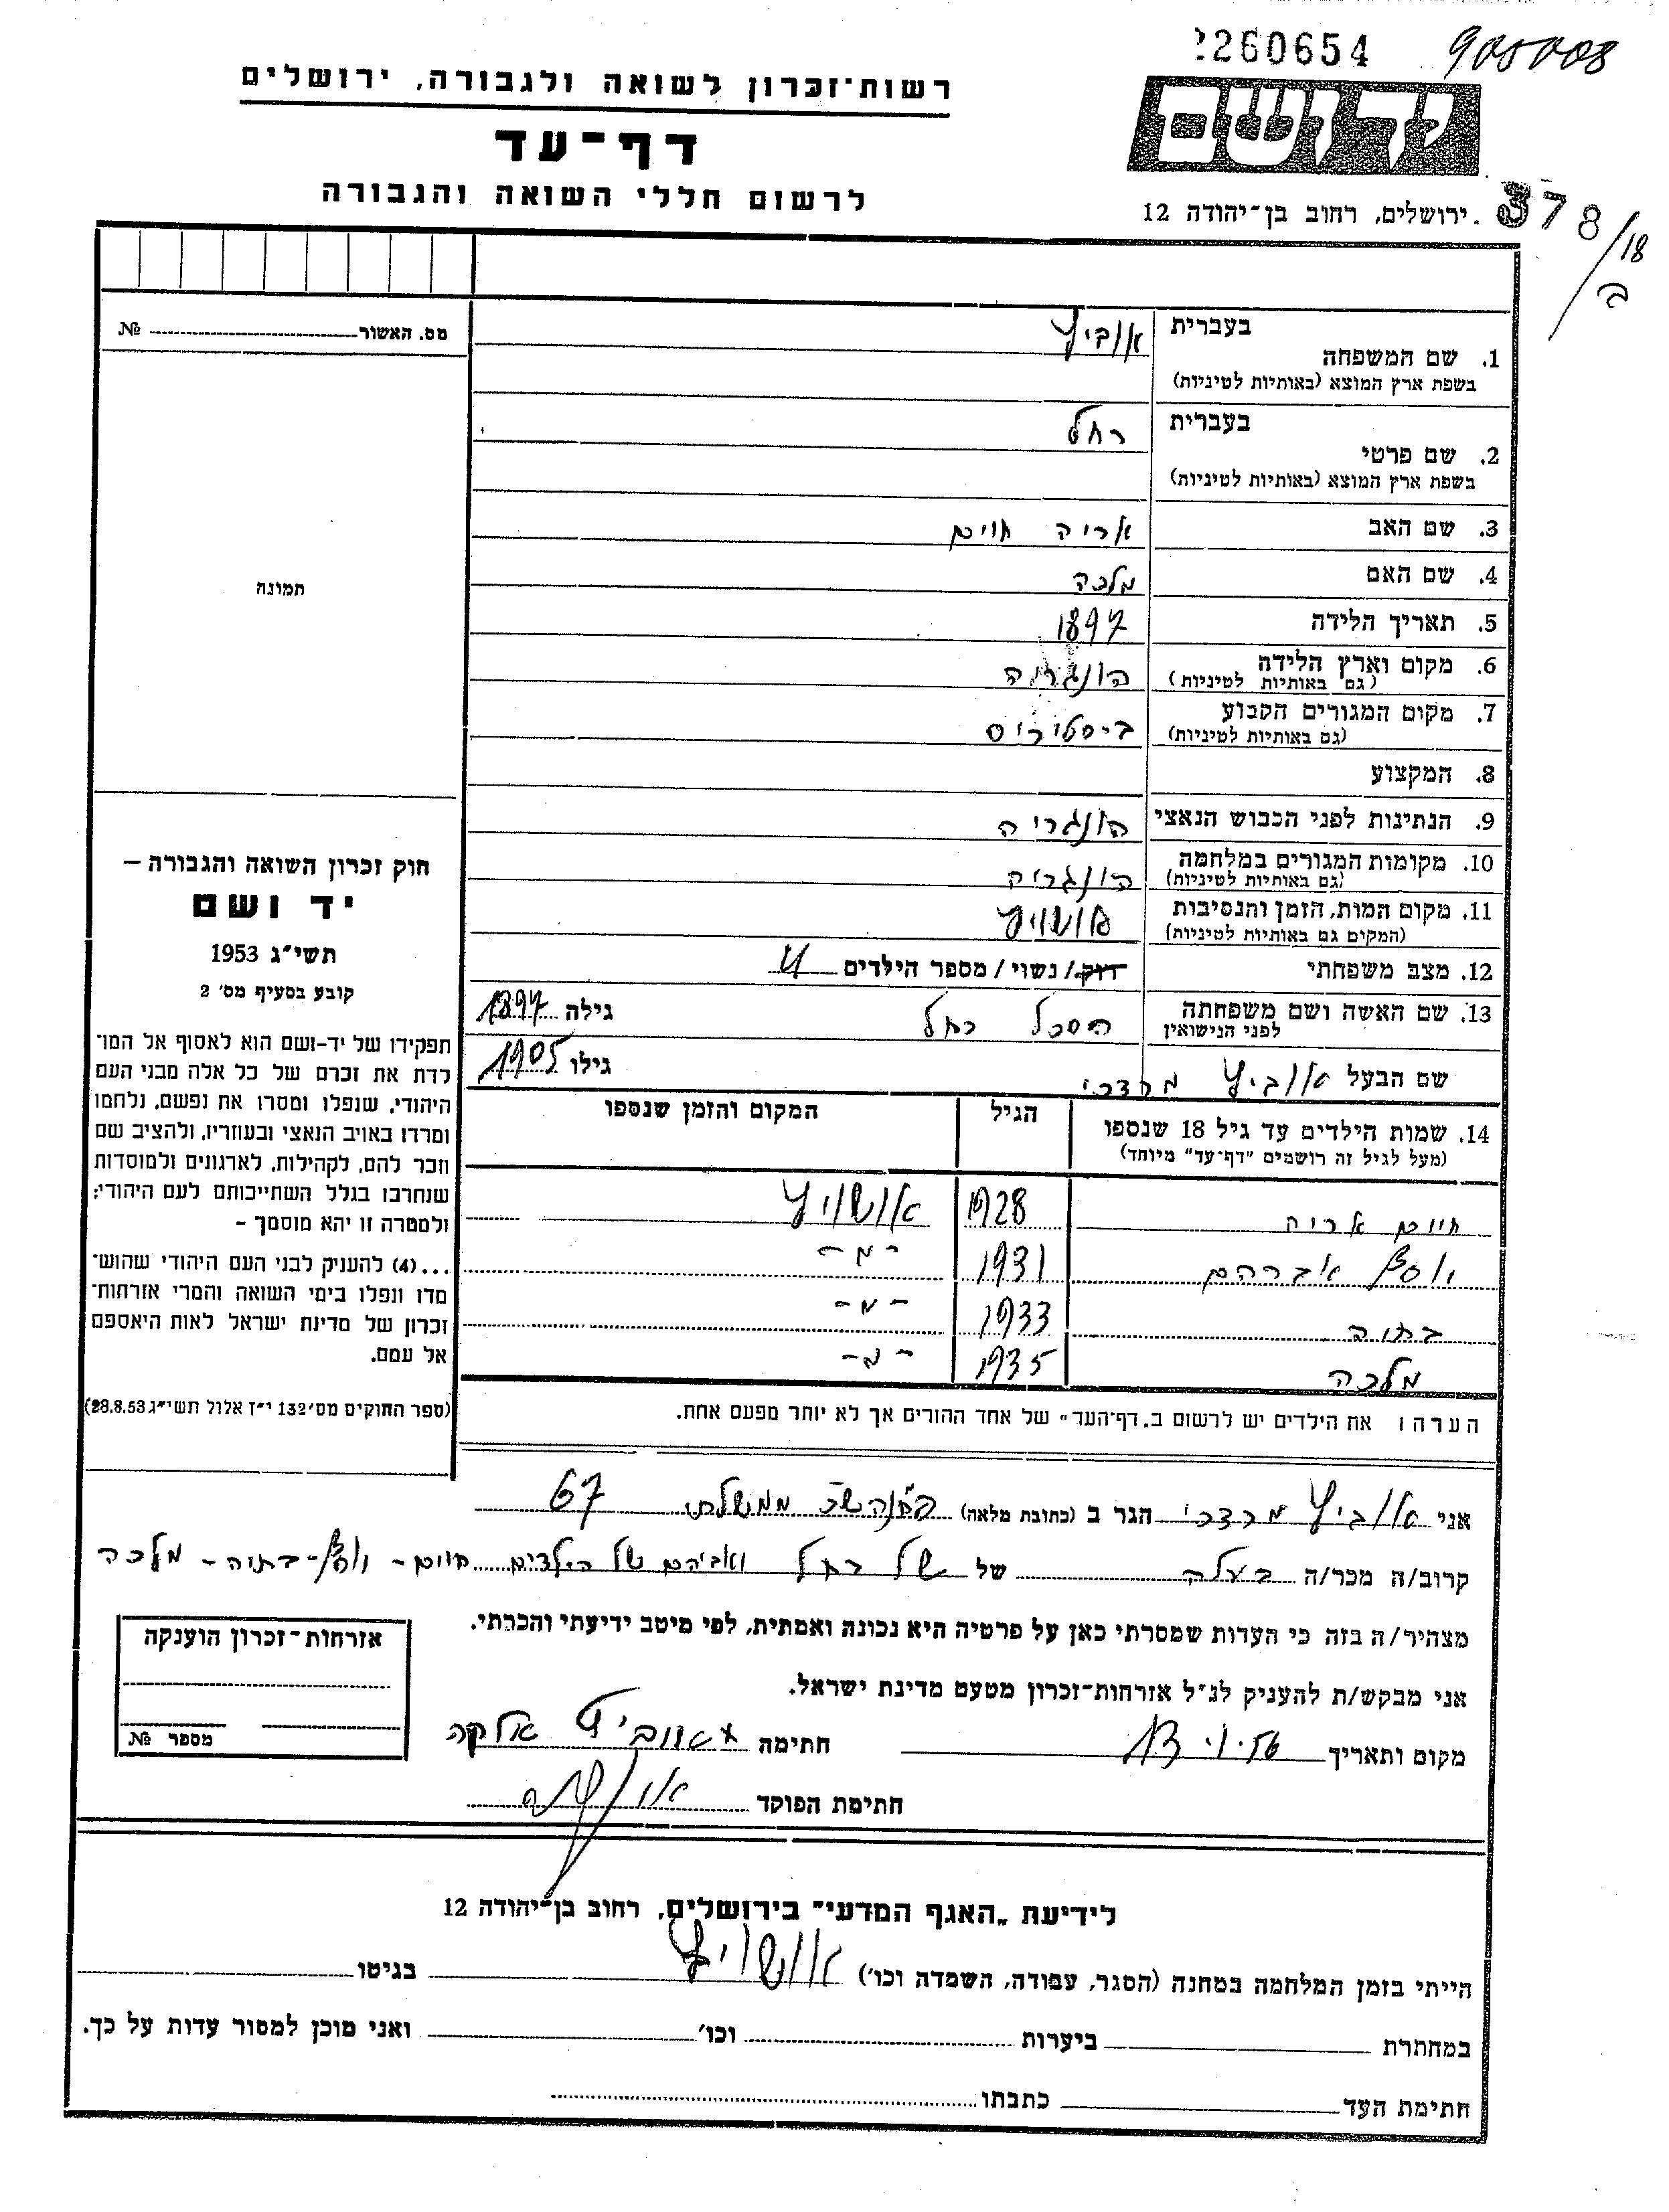 260654 905008
רשות־זכרון לשואה ולגבורה, ירושלים
יד ושם
דף־עד
לרשום חללי השואה והגבורה
ירושלים, רחוב בן־יהודה 12
378/18
ב
מס. האשור № 
1. שם המשפחה בעברית אוביץ
בשפת ארץ המוצא (באותיות לטיניות)
2. שם פרטי בעברית רחל
בשפת ארץ המוצא (באותיות לטיניות)
3. שם האב אריה חיים
4. שם האם מלכה
5. תאריך הלידה 1897
6. מקום וארץ הלידה הונגריה
(גם באותיות לטיניות)
7. מקום המגורים הקבוע ביסטריס
(גם באותיות לטיניות)
8. המקצוע
9. הנתינות לפני הכבוש הנאצי הונגריה
10. מקומות המגורים במלחמה הונגריה
(גם באותיות לטיניות)
11. מקום המות, הזמן והנסיבות אושויץ
(המקום גם באותיות לטיניות)
12. מצב משפחתי רוק/ נשוי / מספר הילדים 4
13. שם האשה ושם משפחתה רחל גילה 1897
לפני הנישואין
שם הבעל אוביץ מרדכי גילו 1905
14. שמות הילדים עד גיל 18 שנספו הגיל המקום והזמן שנספו
(מעל לגיל זה רושמים "דף־עד" מיוחד)
חיים אריה 1928 אושויץ
אברהם 1931 -״-
בתיה 1933 -״-
מלכה 1935 -״-
הערה: את הילדים יש לרשום ב„דף־העד" של אחד ההורים אך לא יותר מפעם אחת.
תמונה
חוק זכרון השואה והגבורה —
יד ושם
תשי"ג 1953
קובע בסעיף מס' 2
תפקידו של יד-ושם הוא לאסוף אל המו־
לדת את זכרם של כל אלה מבני העם
היהודי, שנפלו ומסרו את נפשם, נלחמו
ומרדו באויב הנאצי ובעוזריו, ולהציב שם
וזכר להם, לקהילות, לארגונים ולמוסדות
שנחרבו בגלל השתייכותם לעם היהודי;
ולמטרה זו יהא מוסמך -
...(4) להעניק לבני העם היהודי שהוש־
מדו ונפלו בימי השואה והמרי אזרחות־
זכרון של מדינת ישראל לאות היאספם
אל עמם.
(ספר החוקים מס' 132 י"ז אלול תשי"ג 28.8.53)
אני אוביץ מרדכי הגר ב (כתובת מלאה) ממשלתי 67
קרוב/ה מכר/ה בעלה של של רחל ואביהם של הילדים חיים - בתיה - מלכה
מצהיר/ה בזה כי העדות שמסרתי כאן על פרטיה היא נכונה ואמתית, לפי מיטב ידיעתי והכרתי.
אני מבקש/ת להעניק לנ"ל אזרחות־זכרון מטעם מדינת ישראל.
מקום ותאריך 13.1.56 חתימה
חתימת הפוקד
אזרחות־זכרון הוענקה
מספר №
לידיעת „האגף המדעי" בירושלים, רחוב בן־יהודה 12
הייתי בזמן המלחמה במחנה (הסגר, עבודה, השמדה וכו') אושויץ בגיטו
במחתרת ביערות וכו' ואני מוכן למסור עדות על כך.
חתימת העד כתבתו